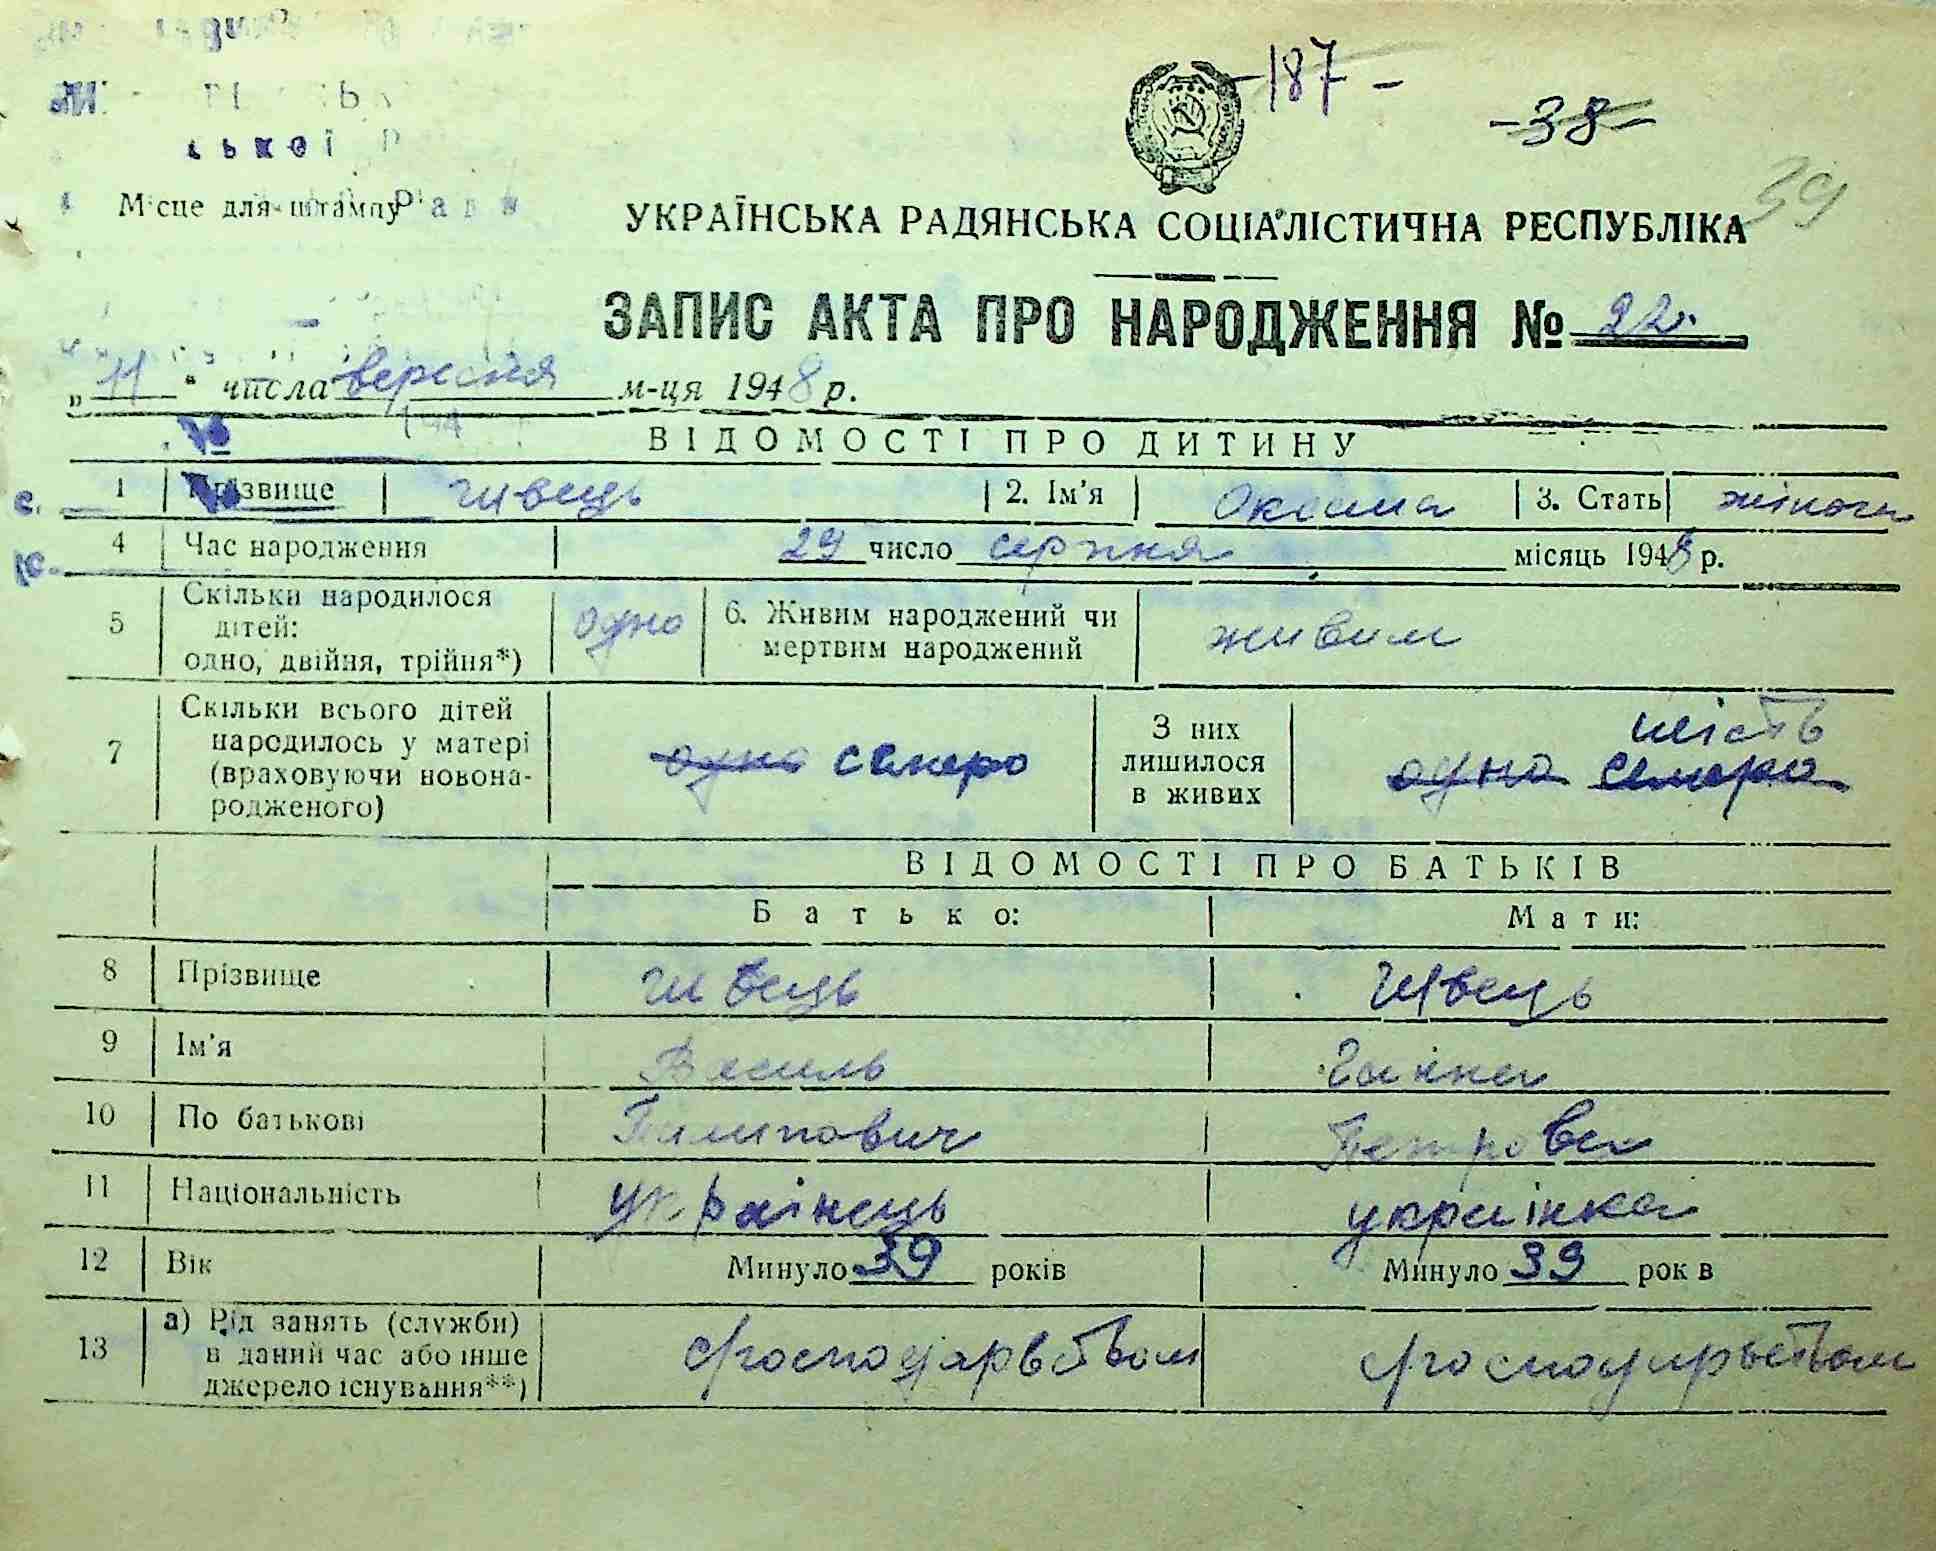 -187-
-38-
39
ької Р
Місце для штампу
УКРАЇНСЬКА РАДЯНСЬКА СОЦІАЛІСТИЧНА РЕСПУБЛІКА
ЗАПИС АКТА ПРО НАРОДЖЕННЯ № 22.
„11“ числа вересня м-ця 1948 р.
ВІДОМОСТІ ПРО ДИТИНУ
1 Прізвище Швець 2. Ім'я Оксана 3. Стать жіноча
4 Час народження 29 число серпня місяць 1948 р.
5 Скільки народилося дітей: одно, двійня, трійня*) одно 6. Живим народжений чи мертвим народжений живим
7 Скільки всього дітей народилось у матері (враховуючи новонародженого) одно семеро З них лишилося в живих одна семеро шість
ВІДОМОСТІ ПРО БАТЬКІВ
Батько: Мати:
8 Прізвище Швець Швець
9 Ім'я Василь Ганна
10 По батькові Пилипович Петровна
11 Національність українець українка
12 Вік Минуло 39 років Минуло 39 рок в
13 а) Рід занять (служби) в даний час або інше джерело існування**) господарвством господарьством